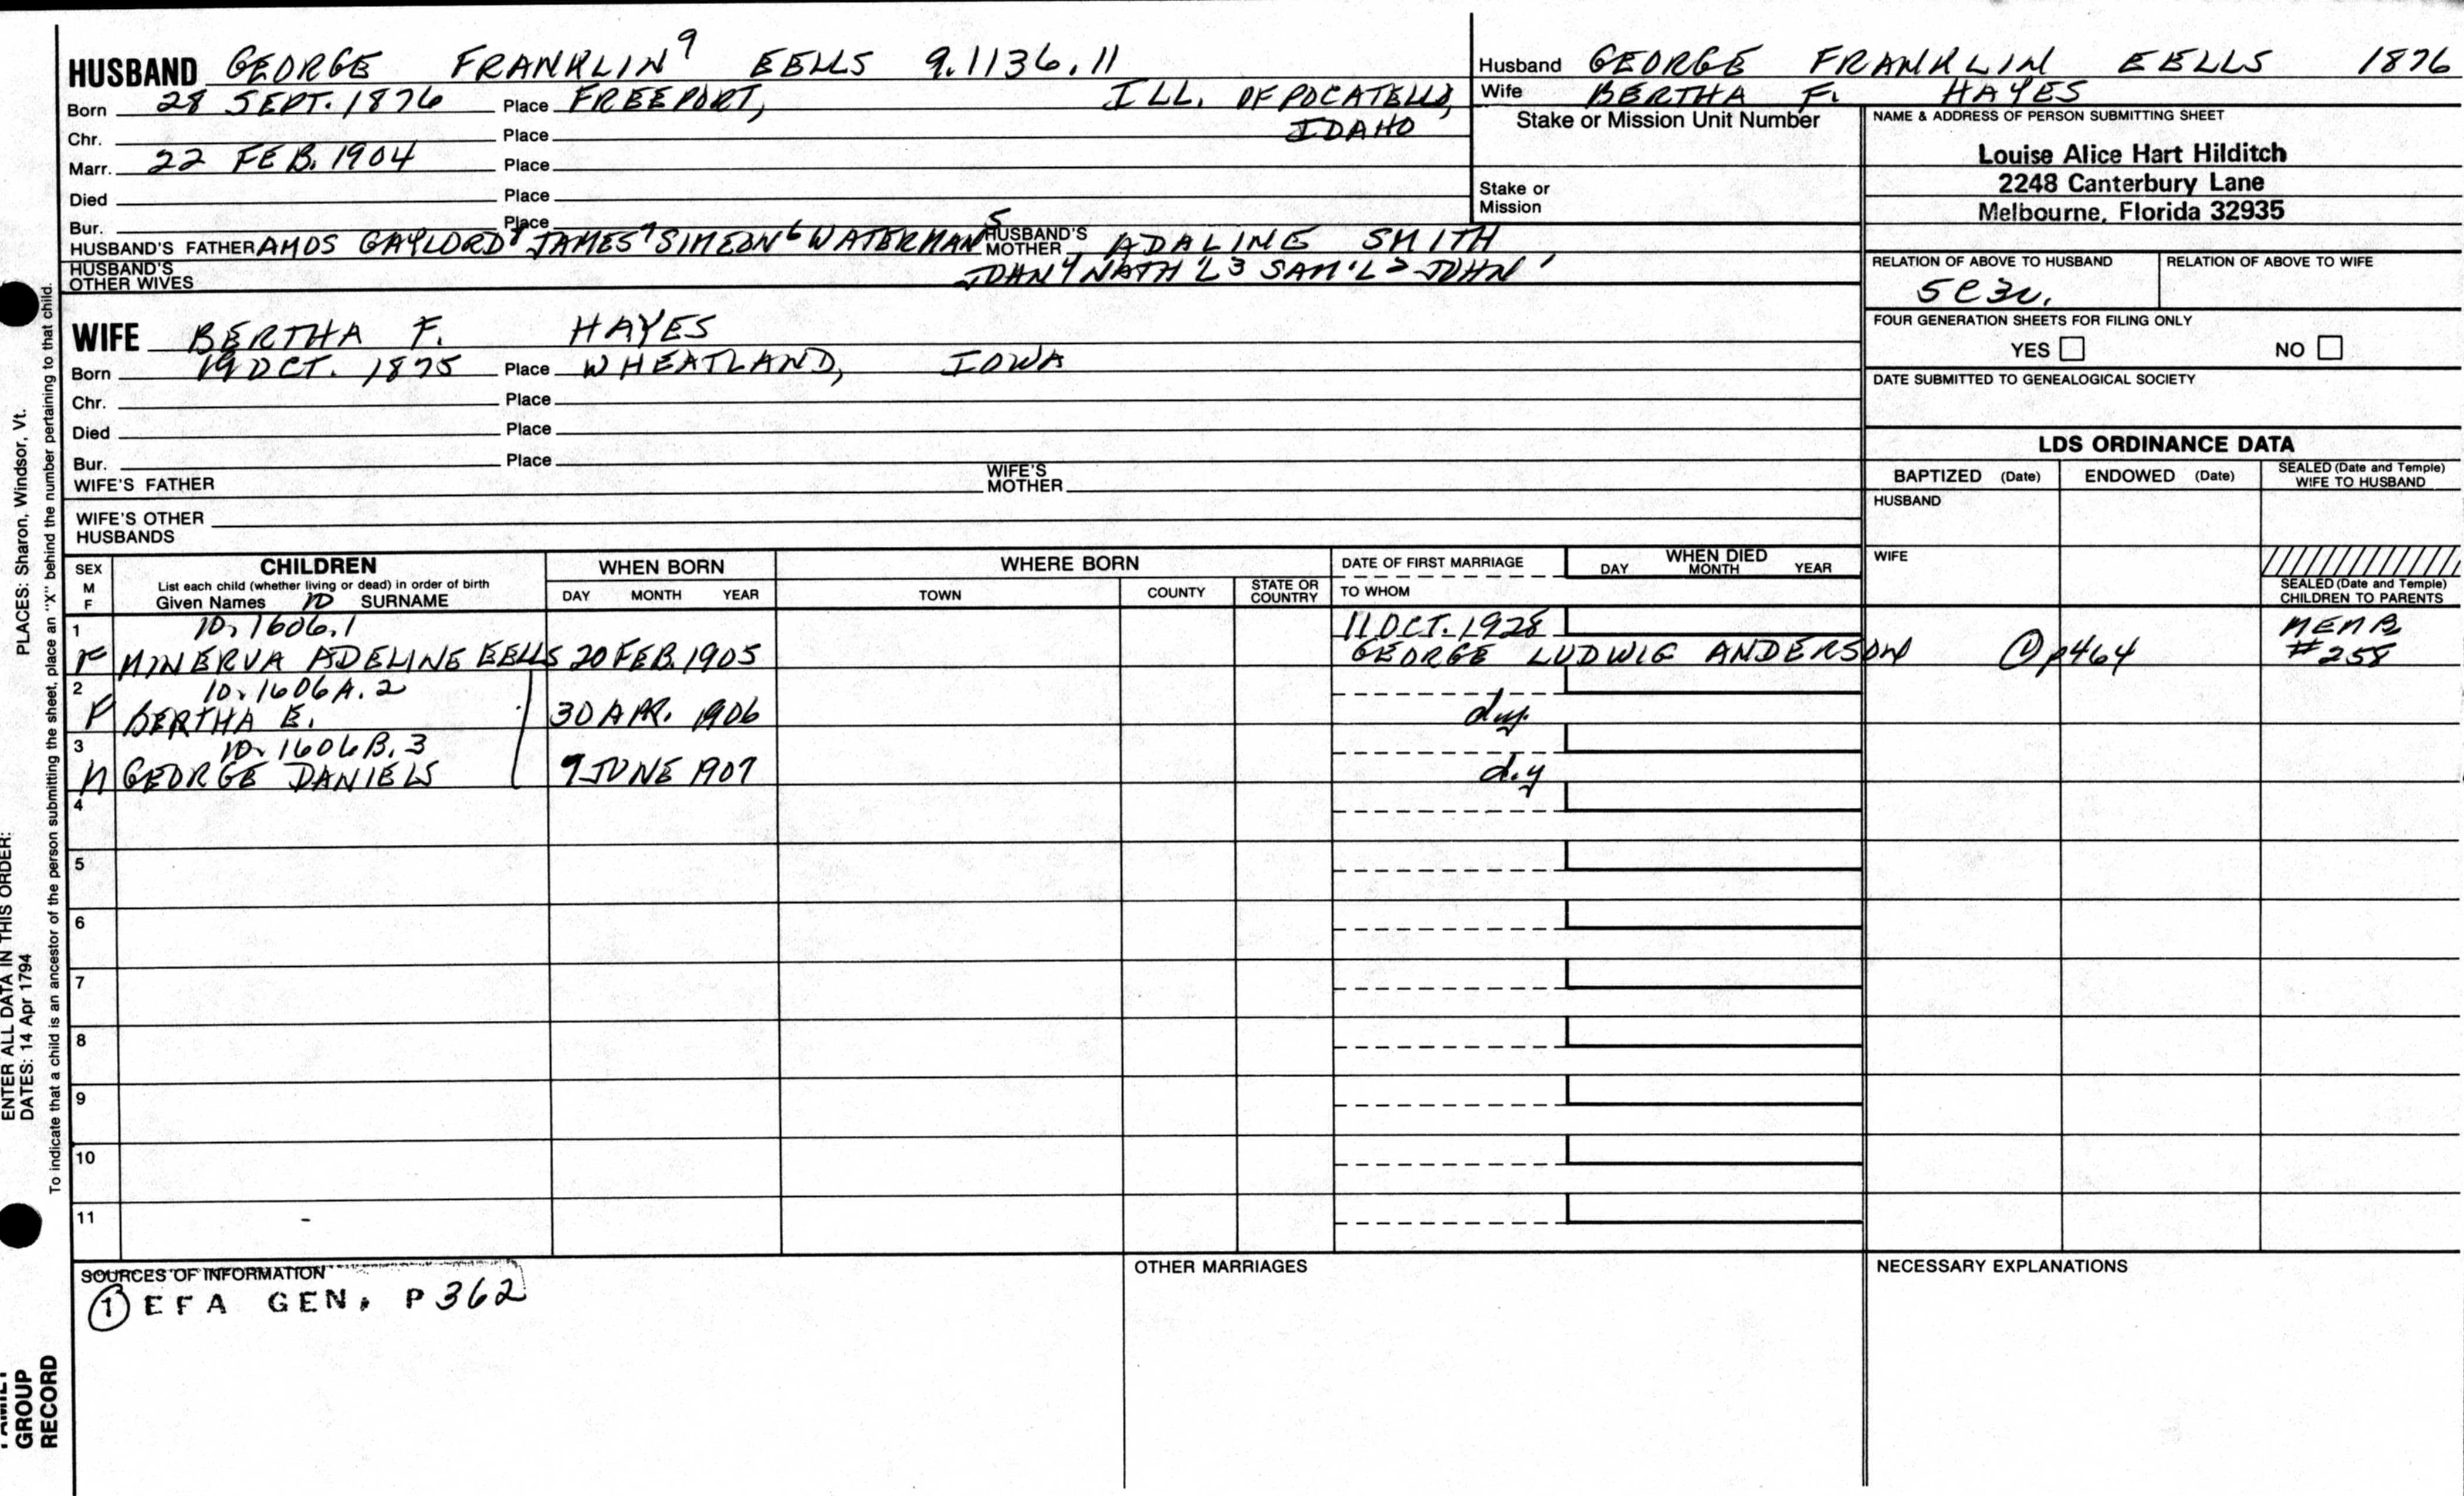 HUSBAND GEORGE FRANKLIN⁹ EELLS 9.1136.11
Born 28 SEPT. 1876 Place FREEPORT, ILL. OF POCATELLO,
Chr. Place IDAHO
Marr. 22 FEB. 1904 Place
Died Place
Bur. Place
HUSBAND'S FATHER AMOS GAYLORD⁸ JAMES⁷ SIMEON⁶ WATERMAN⁵ HUSBAND'S MOTHER ADALINE SMITH
HUSBAND'S OTHER WIVES JOHN⁴ NATH'L³ SAM'L² JOHN¹
WIFE BERTHA F. HAYES
Born 19 OCT. 1875 Place WHEATLAND, IOWA
Chr. Place
Died Place
Bur. Place
WIFE'S FATHER WIFE'S MOTHER
WIFE'S OTHER HUSBANDS
Husband GEORGE FRANKLIN EELLS 1876
Wife BERTHA F. HAYES
Stake or Mission Unit Number
Stake or Mission
NAME & ADDRESS OF PERSON SUBMITTING SHEET
Louise Alice Hart Hilditch
2248 Canterbury Lane
Melbourne, Florida 32935
RELATION OF ABOVE TO HUSBAND RELATION OF ABOVE TO WIFE
5C3R.
FOUR GENERATION SHEETS FOR FILING ONLY
YES NO
DATE SUBMITTED TO GENEALOGICAL SOCIETY
LDS ORDINANCE DATA
BAPTIZED (Date) ENDOWED (Date) SEALED (Date and Temple) WIFE TO HUSBAND
HUSBAND
WIFE
SEALED (Date and Temple) CHILDREN TO PARENTS
SEX M F
CHILDREN
List each child (whether living or dead) in order of birth
Given Names 10 SURNAME
WHEN BORN
DAY MONTH YEAR
WHERE BORN
TOWN COUNTY STATE OR COUNTRY
DATE OF FIRST MARRIAGE
TO WHOM
WHEN DIED
DAY MONTH YEAR
1 10.1606.1 11 OCT. 1928 MEMB.
F MINERVA ADELINE EELLS 20 FEB. 1905 GEORGE LUDWIG ANDERSON ① p464 #258
2 10.1606A.2
F BERTHA E. 30 APR. 1906 d.y.
3 10.1606B.3
M GEORGE DANIELS 9 JUNE 1907 d.y
4
5
6
7
8
9
10
11 -
SOURCES OF INFORMATION
① EFA GEN. P362
OTHER MARRIAGES
NECESSARY EXPLANATIONS
ENTER ALL DATA IN THIS ORDER:
DATES: 14 Apr 1794 PLACES: Sharon, Windsor, Vt.
To indicate that a child is an ancestor of the person submitting the sheet, place an "X" behind the number pertaining to that child.
FAMILY
GROUP
RECORD